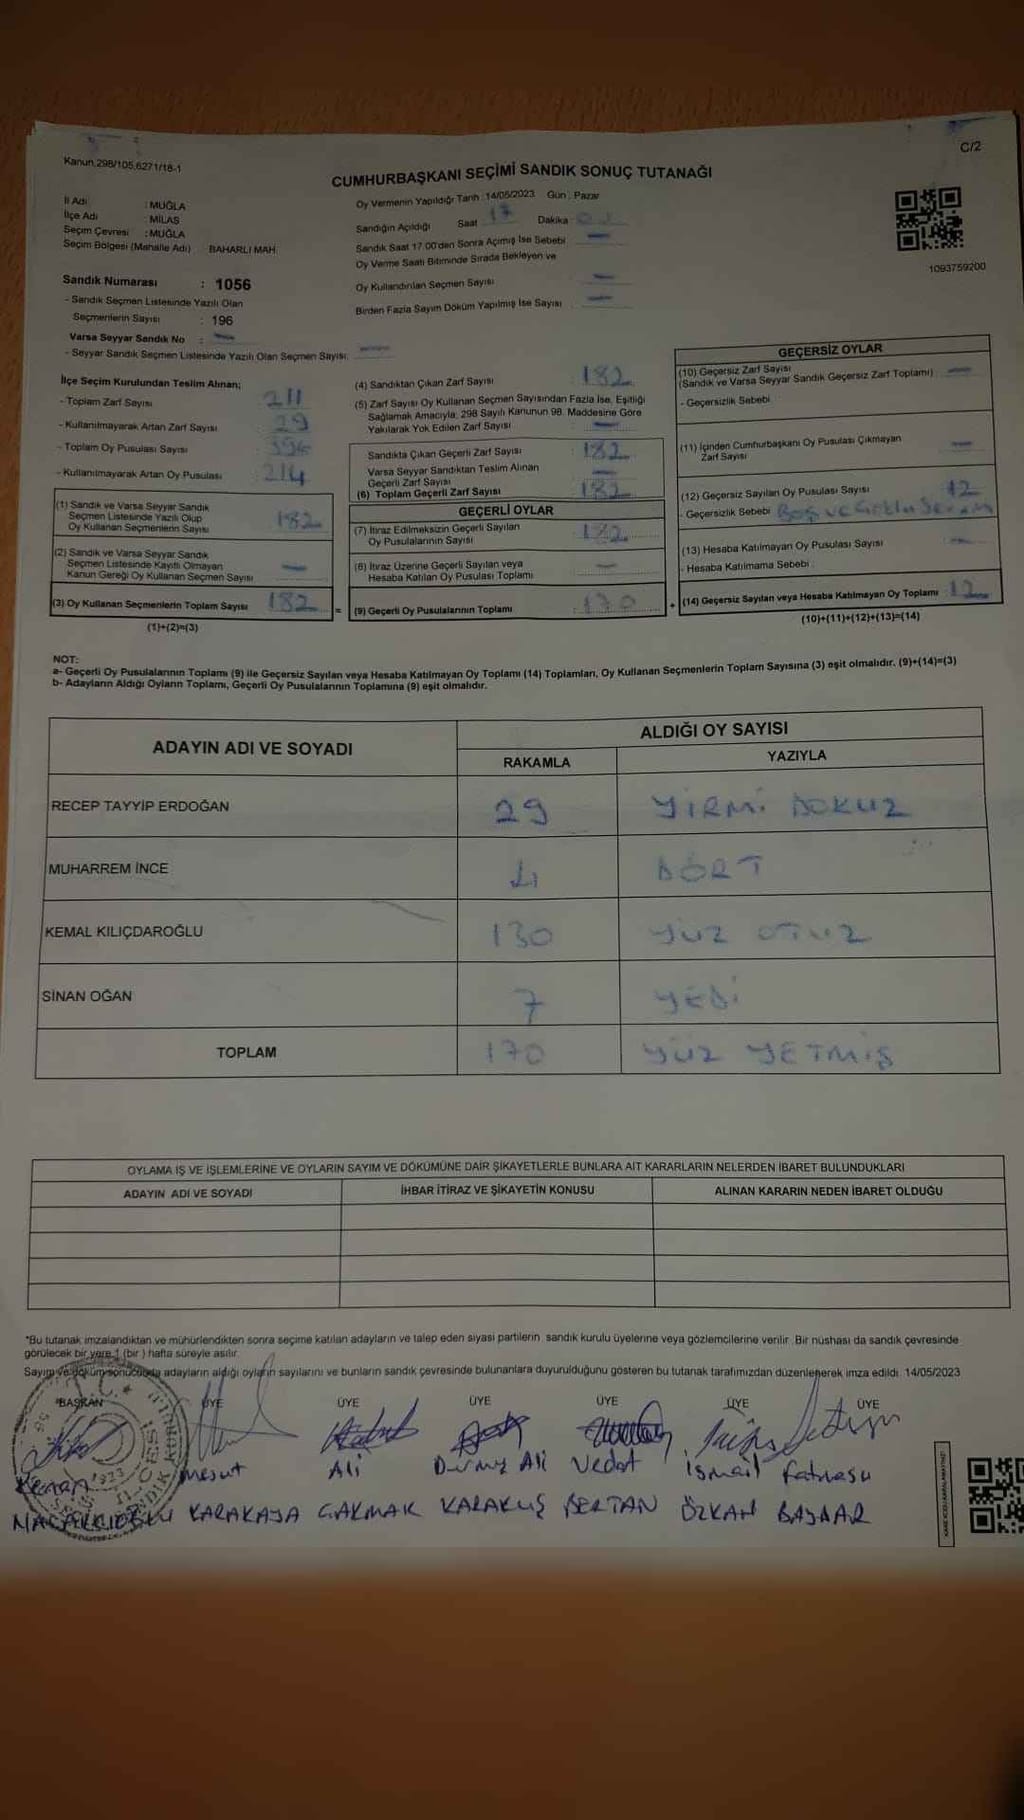 Kanun.298/105,6271/18-1
C/2
CUMHURBAŞKANI SEÇİMİ SANDIK SONUÇ TUTANAĞI
İl Adı : MUĞLA
İlçe Adı : MİLAS
Seçim Çevresi : MUĞLA
Seçim Bölgesi (Mahalle Adı) BAHARLI MAH.
Sandık Numarası : 1056
- Sandık Seçmen Listesinde Yazılı Olan
Seçmenlerin Sayısı : 196
Varsa Seyyar Sandık No : —
- Seyyar Sandık Seçmen Listesinde Yazılı Olan Seçmen Sayısı: —
Oy Vermenin Yapıldığı Tarih :14/05/2023 Gün : Pazar
Sandığın Açıldığı Saat 17 Dakika
Sandık Saat 17.00'den Sonra Açımış İse Sebebi —
Oy Verme Saati Bitiminde Sırada Bekleyen ve
Oy Kullandırılan Seçmen Sayısı —
Birden Fazla Sayım Döküm Yapılmış İse Sayısı —
1093759200
İlçe Seçim Kurulundan Teslim Alınan;
- Toplam Zarf Sayısı 211
- Kullanılmayarak Artan Zarf Sayısı 29
- Toplam Oy Pusulası Sayısı 396
- Kullanılmayarak Artan Oy Pusulası 214
(1) Sandık ve Varsa Seyyar Sandık
Seçmen Listesinde Yazılı Olup
Oy Kullanan Seçmenlerin Sayısı 182
(2) Sandık ve Varsa Seyyar Sandık
Seçmen Listesinde Kayıtlı Olmayan
Kanun Gereği Oy Kullanan Seçmen Sayısı —
(3) Oy Kullanan Seçmenlerin Toplam Sayısı 182 =
(1)+(2)=(3)
(4) Sandıktan Çıkan Zarf Sayısı : 182
(5) Zarf Sayısı Oy Kullanan Seçmen Sayısından Fazla İse, Eşitliği
Sağlamak Amacıyla; 298 Sayılı Kanunun 98. Maddesine Göre
Yakılarak Yok Edilen Zarf Sayısı —
Sandıkta Çıkan Geçerli Zarf Sayısı : 182
Varsa Seyyar Sandıktan Teslim Alınan
Geçerli Zarf Sayısı —
(6) Toplam Geçerli Zarf Sayısı : 182
GEÇERLİ OYLAR
(7) İtiraz Edilmeksizin Geçerli Sayılan
Oy Pusulalarının Sayısı : 182
(8) İtiraz Üzerine Geçerli Sayılan veya
Hesaba Katılan Oy Pusulası Toplamı : —
(9) Geçerli Oy Pusulalarının Toplamı : 170 +
GEÇERSİZ OYLAR
(10) Geçersiz Zarf Sayısı
(Sandık ve Varsa Seyyar Sandık Geçersiz Zarf Toplamı) —
- Geçersizlik Sebebi
(11) İçinden Cumhurbaşkanı Oy Pusulası Çıkmayan
Zarf Sayısı —
(12) Geçersiz Sayılan Oy Pusulası Sayısı 12
- Geçersizlik Sebebi Boş ve
(13) Hesaba Katılmayan Oy Pusulası Sayısı —
- Hesaba Katılmama Sebebi
(14) Geçersiz Sayılan veya Hesaba Katılmayan Oy Toplamı : 12
(10)+(11)+(12)+(13)=(14)
NOT:
a- Geçerli Oy Pusulalarının Toplamı (9) ile Geçersiz Sayılan veya Hesaba Katılmayan Oy Toplamı (14) Toplamları, Oy Kullanan Seçmenlerin Toplam Sayısına (3) eşit olmalıdır. (9)+(14)=(3)
b- Adayların Aldığı Oyların Toplamı, Geçerli Oy Pusulalarının Toplamına (9) eşit olmalıdır.
ADAYIN ADI VE SOYADI
ALDIĞI OY SAYISI
RAKAMLA YAZIYLA
RECEP TAYYİP ERDOĞAN 29 YİRMİ DOKUZ
MUHARREM İNCE 4 DÖRT
KEMAL KILIÇDAROĞLU 130 YÜZ OTUZ
SİNAN OĞAN 7 YEDİ
TOPLAM 170 YÜZ YETMİŞ
OYLAMA İŞ VE İŞLEMLERİNE VE OYLARIN SAYIM VE DÖKÜMÜNE DAİR ŞİKAYETLERLE BUNLARA AİT KARARLARIN NELERDEN İBARET BULUNDUKLARI
ADAYIN ADI VE SOYADI İHBAR İTİRAZ VE ŞİKAYETİN KONUSU ALINAN KARARIN NEDEN İBARET OLDUĞU
*Bu tutanak imzalandıktan ve mühürlendikten sonra seçime katılan adayların ve talep eden siyasi partilerin sandık kurulu üyelerine veya gözlemcilerine verilir. Bir nüshası da sandık çevresinde
görülecek bir yere 1 (bir) hafta süreyle asılır.
Sayım ve döküm sonucunda adayların aldığı oyların sayılarını ve bunların sandık çevresinde bulunanlara duyurulduğunu gösteren bu tutanak tarafımızdan düzenlenerek imza edildi. 14/05/2023
BAŞKAN ÜYE ÜYE ÜYE ÜYE ÜYE ÜYE
Kenan Mesut Ali Durmuş Ali Vedat İsmail Fatmasu
KARAKAYA ÇAKMAK KARAKUŞ BERTAN ÖZKAN BAYNAR